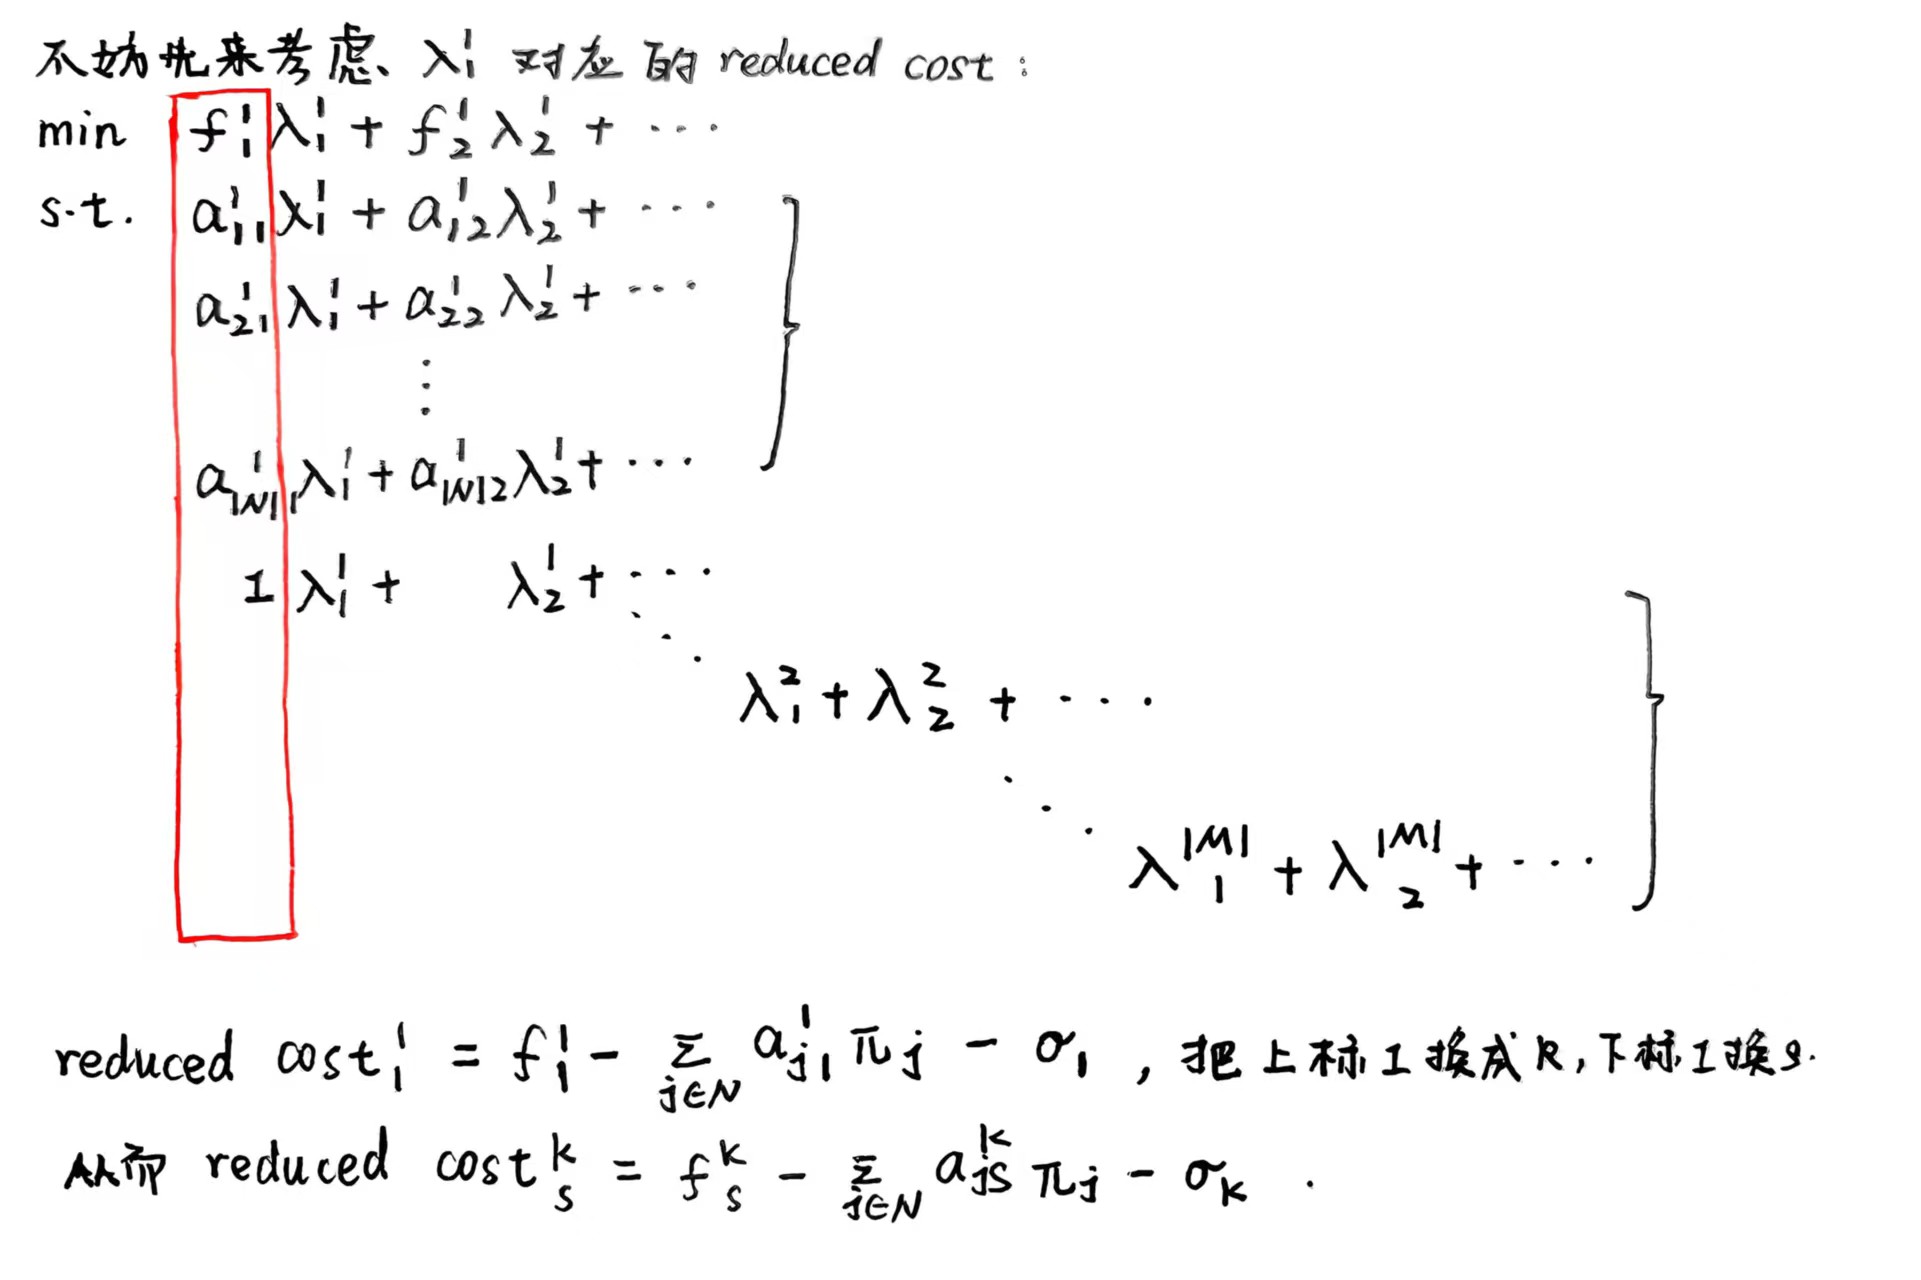 不妨先来考虑 λ₁¹ 对应的 reduced cost :
min f₁¹λ₁¹ + f₂¹λ₂¹ + ···
s.t. a₁₁¹λ₁¹ + a₁₂¹λ₂¹ + ···
a₂₁¹λ₁¹ + a₂₂¹λ₂¹ + ···
⋮
a¹_{|N|1}λ₁¹ + a¹_{|N|2}λ₂¹ + ···
1λ₁¹ + λ₂¹ + ···
⋱
λ₁² + λ₂² + ···
⋱
λ₁^{|M|} + λ₂^{|M|} + ···
reduced cost₁¹ = f₁¹ - Σ_{j∈N} a_{j1}¹ π_j - σ₁ , 把上标1换成k,下标1换s.
从而 reduced cost_s^k = f_s^k - Σ_{j∈N} a_{js}^k π_j - σ_k .